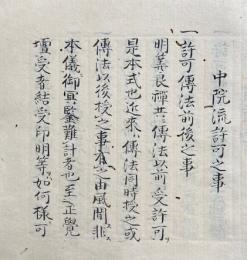 中院流許可之事
一許可傳法前後之事
明算良禅共傳法以前受許可
是本式也近来傳法同時授之或
傳法以後授之事有之由風聞非
本儀御冥鑒難計者也至正覺
壇受者結受印明等如何樣可